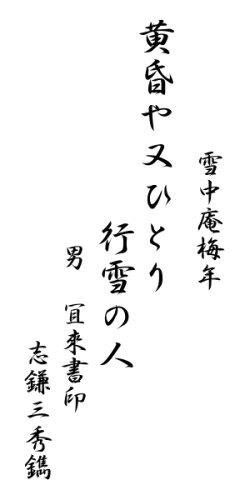 雪中庵梅年
黄昏や又ひとり
行雪の人
男 宜來書印
志鎌三秀鐫